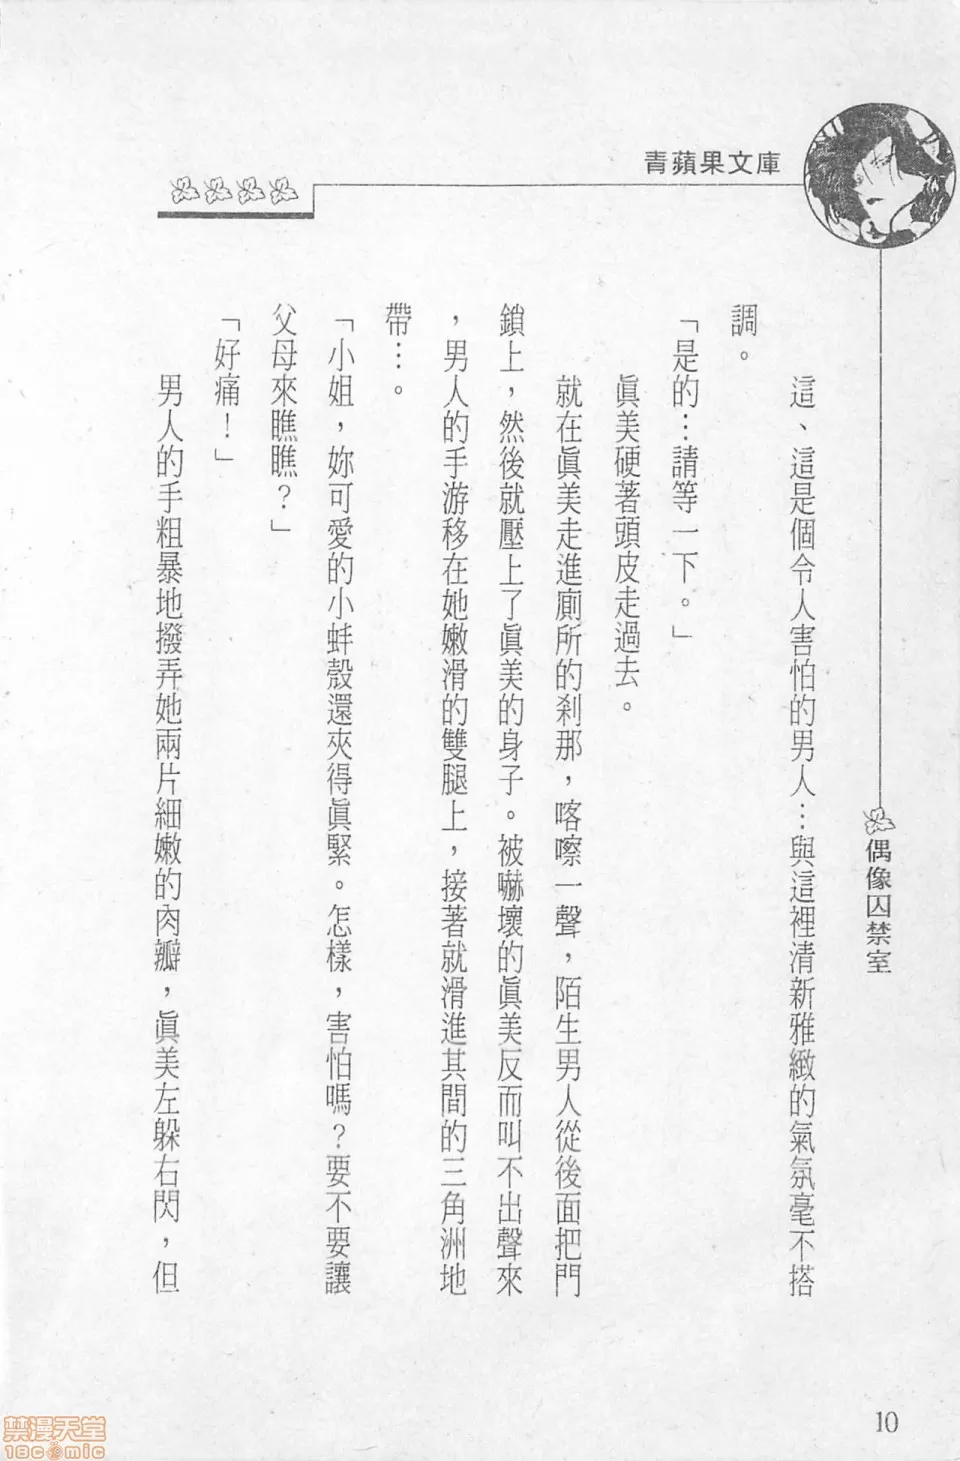 青蘋果文庫
偶像囚禁室
這、這是個令人害怕的男人…與這裡清新雅緻的氣氛毫不搭
調。
「是的…請等一下。」
眞美硬著頭皮走過去。
就在眞美走進廁所的刹那，喀嚓一聲，陌生男人從後面把門
鎖上，然後就壓上了眞美的身子。被嚇壞的眞美反而叫不出聲來
，男人的手游移在她嫩滑的雙腿上，接著就滑進其間的三角洲地
帶…。
「小姐，妳可愛的小蚌殼還夾得眞緊。怎樣，害怕嗎？要不要讓
父母來瞧瞧？」
「好痛！」
男人的手粗暴地撥弄她兩片細嫩的肉瓣，眞美左躲右閃，但
10
禁漫天堂
18comic